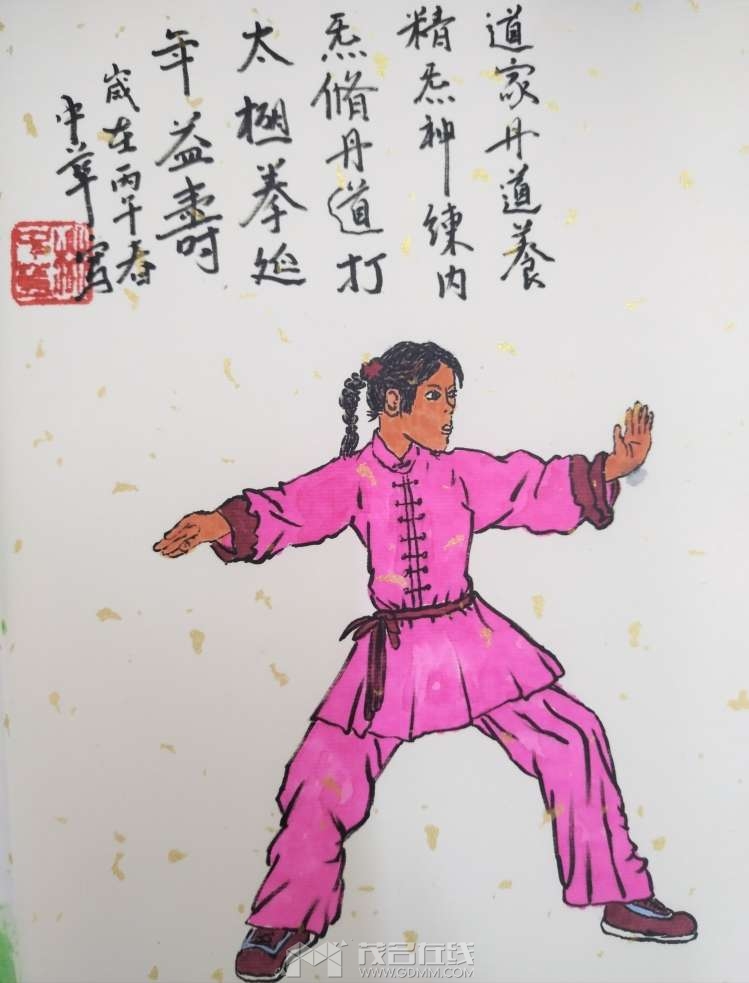 道家丹道養
精炁神練内
炁脩丹道打
太極拳延
年益壽
歲在丙午春
中華寫
茂名在线
WWW.GDMM.COM